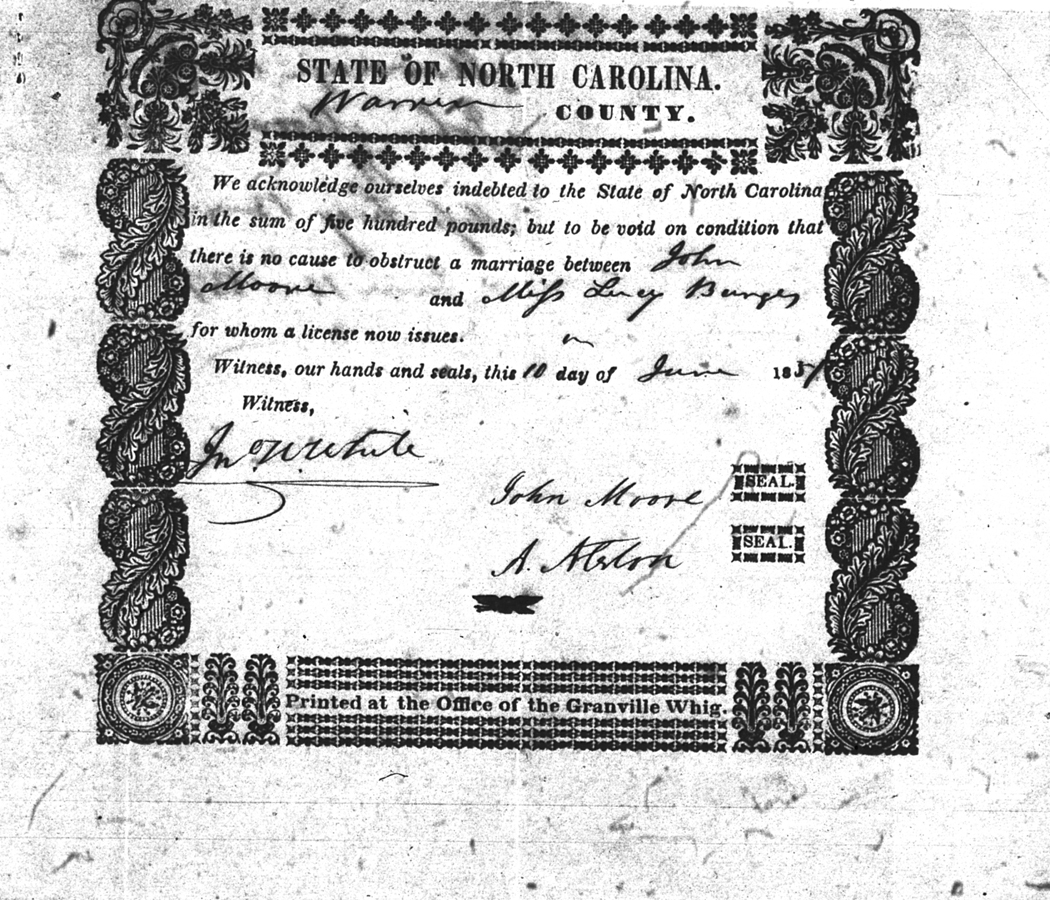 STATE OF NORTH CAROLINA.
Warren COUNTY.
We acknowledge ourselves indebted to the State of North Carolina
in the sum of five hundred pounds; but to be void on condition that
there is no cause to obstruct a marriage between John
Moore and Miss Lucy Burges
for whom a license now issues.
Witness, our hands and seals, this 10 day of June 1857
Witness,
Jno W White
John Moore SEAL.
A. Alston SEAL.
Printed at the Office of the Granville Whig.